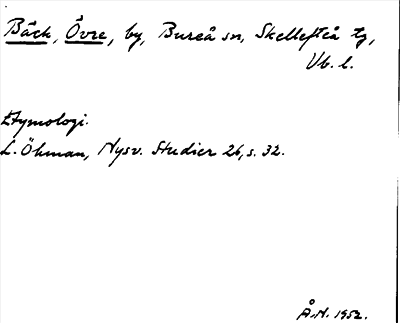 Bäck, Övre, by, Bureå sn, Skellefteå tg,
Vb. l.
Etymologi.
L. Öhman, Nysv. Studier 26, s. 32.
Å.H. 1952.